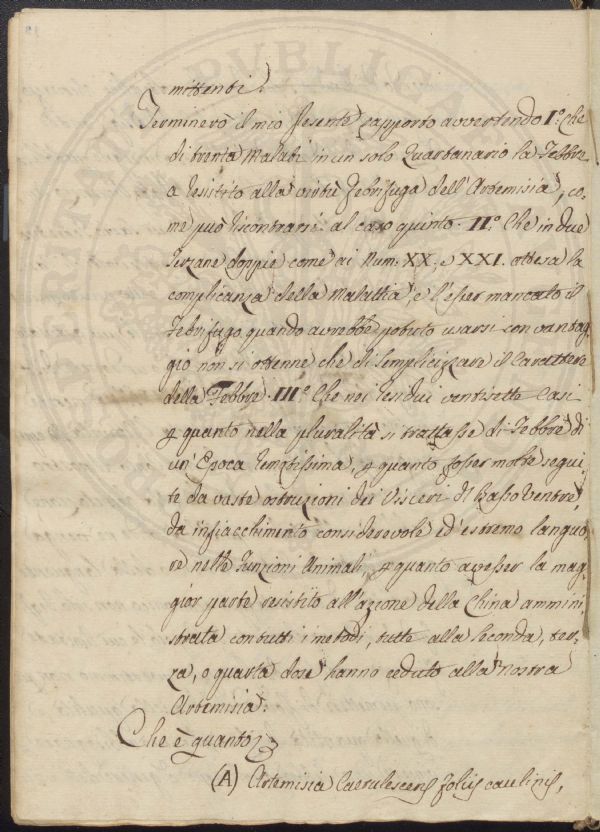 mittenti.
Terminerò il mio presente rapporto avvertendo I.° Che
di trenta Malati in un solo Quartanario la Febbre
a resistito alla virtù febrifuga dell'Artemisia, co-
me può riscontrarsi al caso quinto. II.° Che in due
Terzane doppie come ai Num: XX. e XXI. attesa la
complicanza della Malattia, e l'esser mancato il
Febrifugo quando avrebbe potuto usarsi con vantag-
gio non si ottenne che di semplicizzare il Carattere
della Febbre. III.° Che nei residui ventisette Casi
p quanto nella pluralità si trattasse di Febbre di
un'Epoca remotissima, p quanto fosser molte segui-
te da vaste ostruzioni dei Visceri di Basso Ventre,
da infiacchimento considerevole ed estremo languo-
re nelle funzioni Animali, p quanto avesser la mag-
gior parte resistito all'azione della China ammini-
strata con tutti i metodi, tutte alla seconda, ter-
za, o quarta dose hanno ceduto alla nostra
Artemisia.
Che è quanto
(A) Artemisia Caerulescens foliis caulinis,